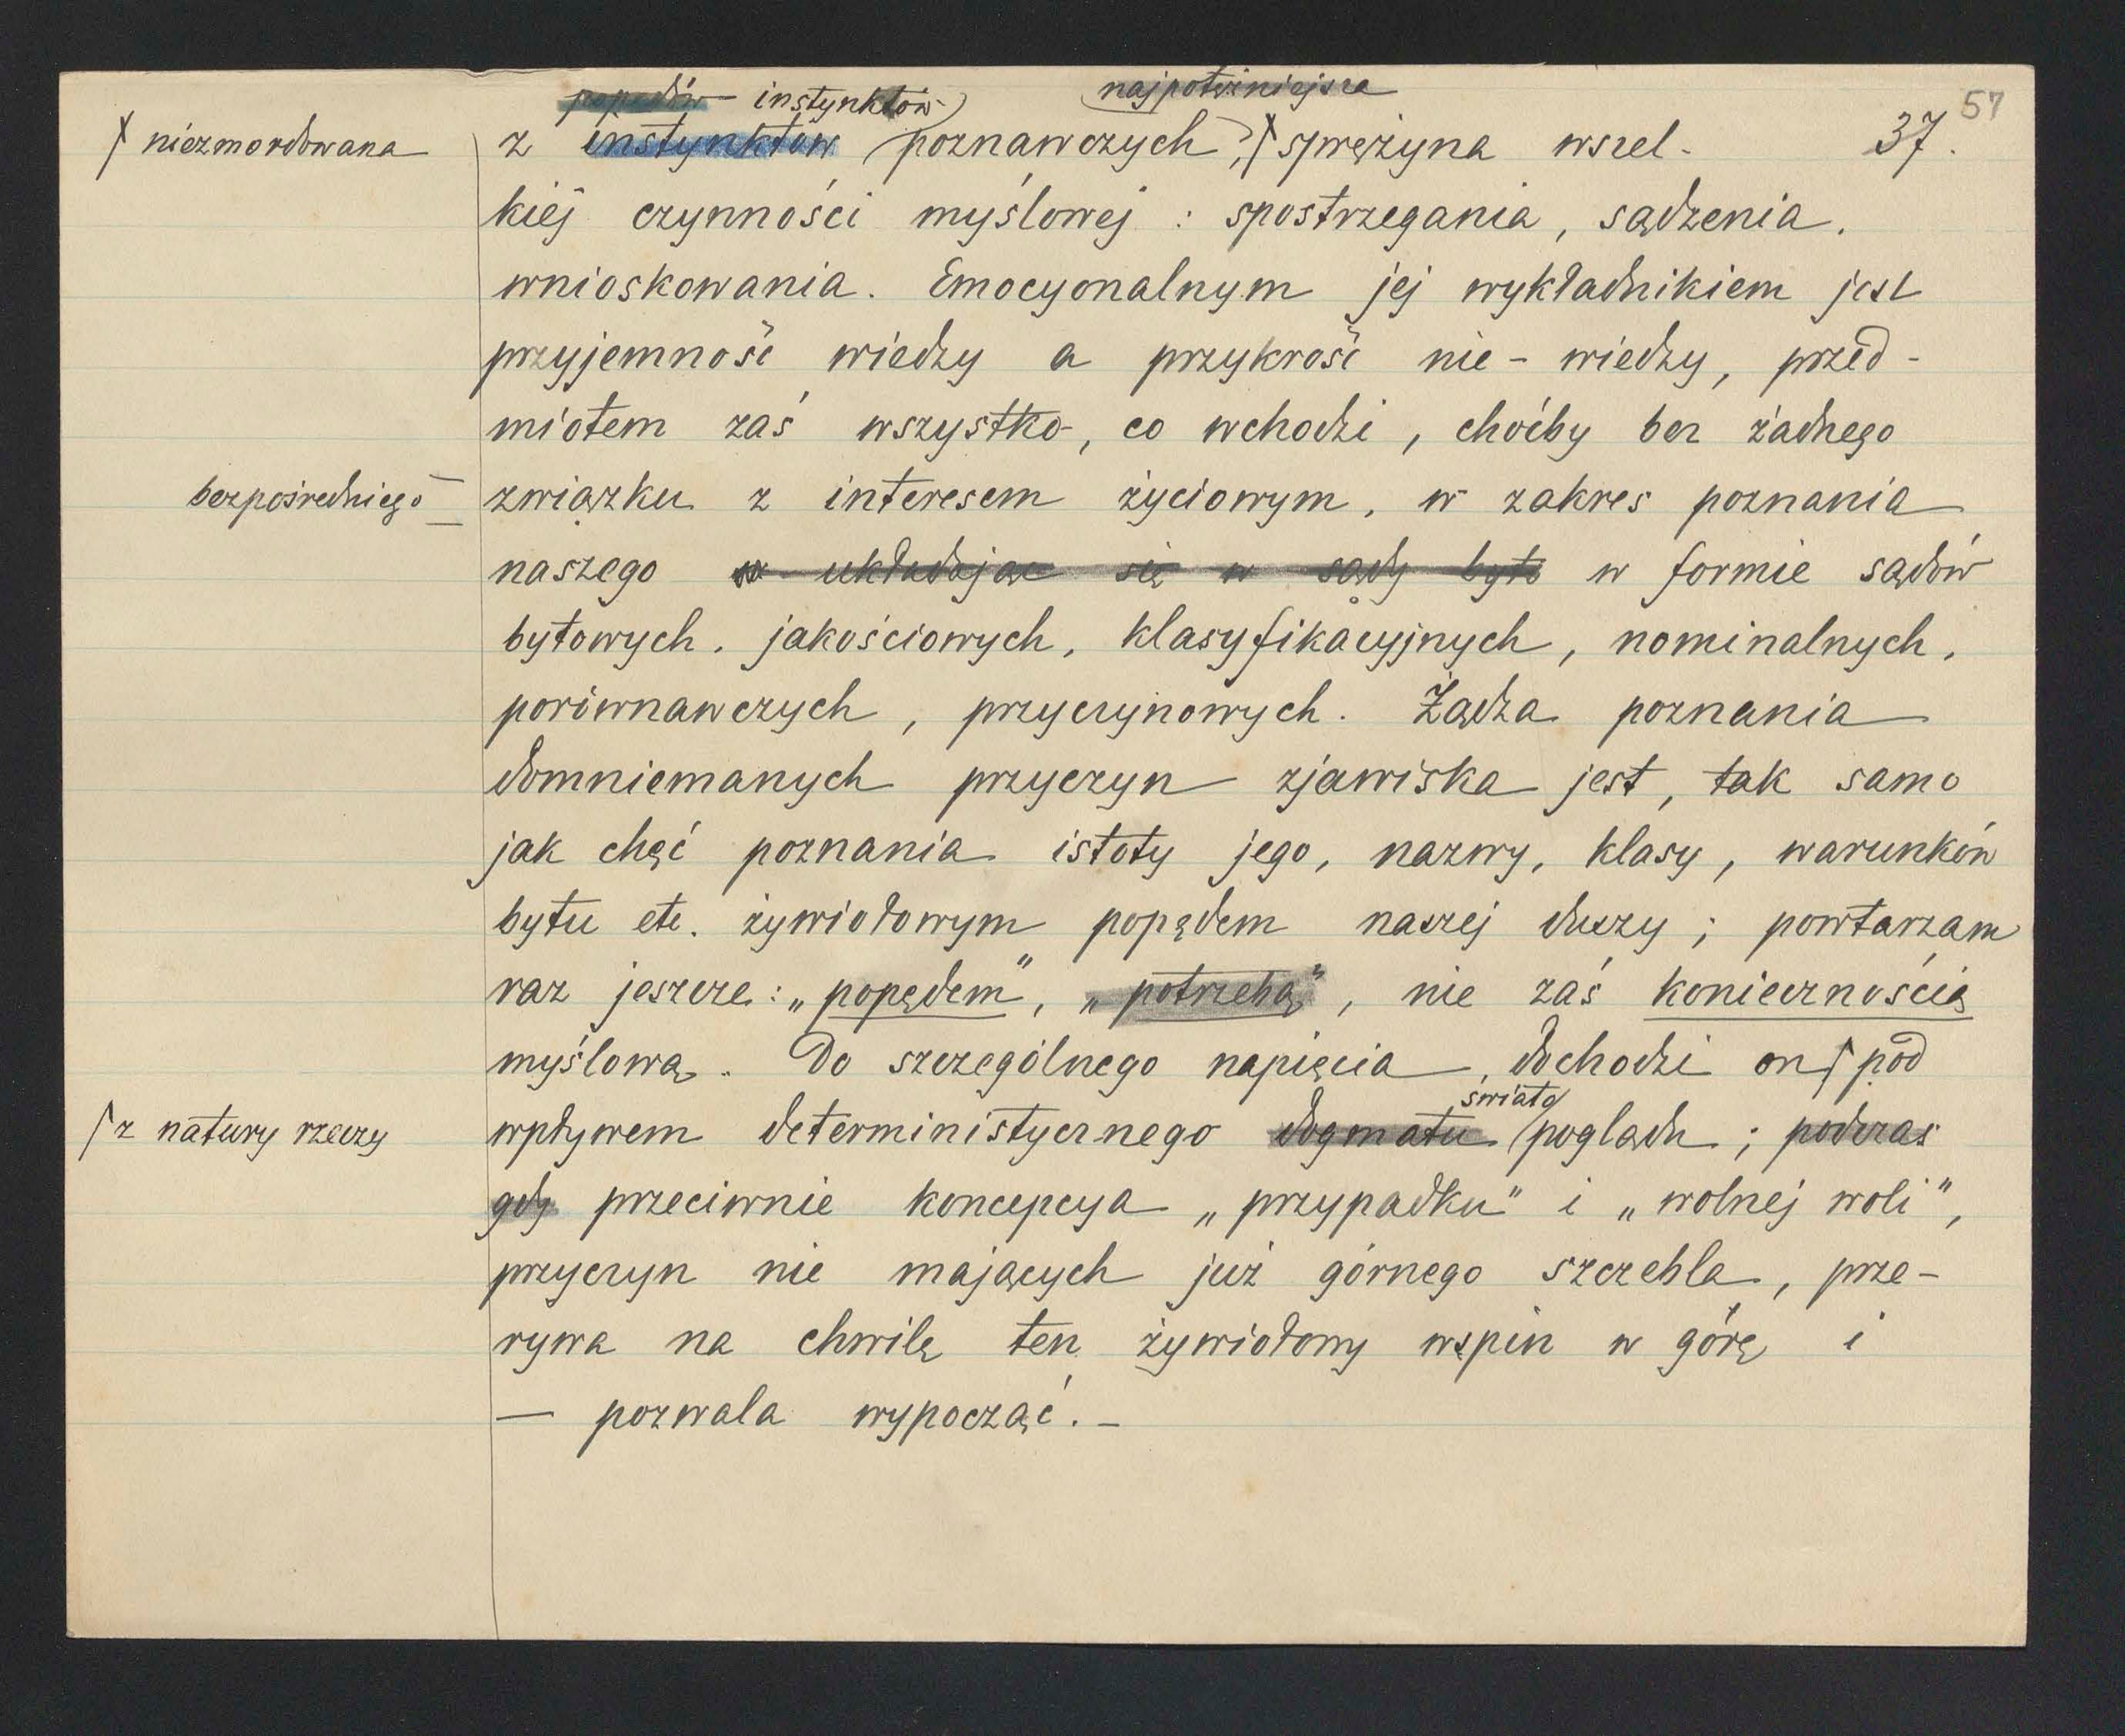 57
37.
popędów instynktów najpotężniejsza
niezmordowana z instynktów poznawczych, sprężyna wszel-
kiej czynności myślowej : spostrzegania, sądzenia,
wnioskowania. Emocyonalnym jej wykładnikiem jest
przyjemność wiedzy a przykrość nie-wiedzy, przed-
miotem zaś wszystko, co wchodzi, choćby bez żadnego
bezpośredniego związku z interesem życiowym, w zakres poznania
naszego w układając się w sądy byto w formie sądów
bytowych, jakościowych, klasyfikacyjnych, nominalnych,
porównawczych, przyczynowych. Żądza poznania
domniemanych przyczyn zjawiska jest, tak samo
jak chęć poznania istoty jego, nazwy, klasy, warunków
bytu etc. żywiołowym popędem naszej duszy ; powtarzam
raz jeszcze : „popędem", „potrzebą", nie zaś koniecznością
myślową. Do szczególnego napięcia dochodzi on pod
świato
z natury rzeczy wpływem deterministycznego dogmatu poglądu ; podczas
gdy przeciwnie koncepcya „przypadku" i „wolnej woli",
przyczyn nie mających już górnego szczebla, prze-
rywa na chwilę ten żywiołowy wspin w górę i
— pozwala wypocząć. -